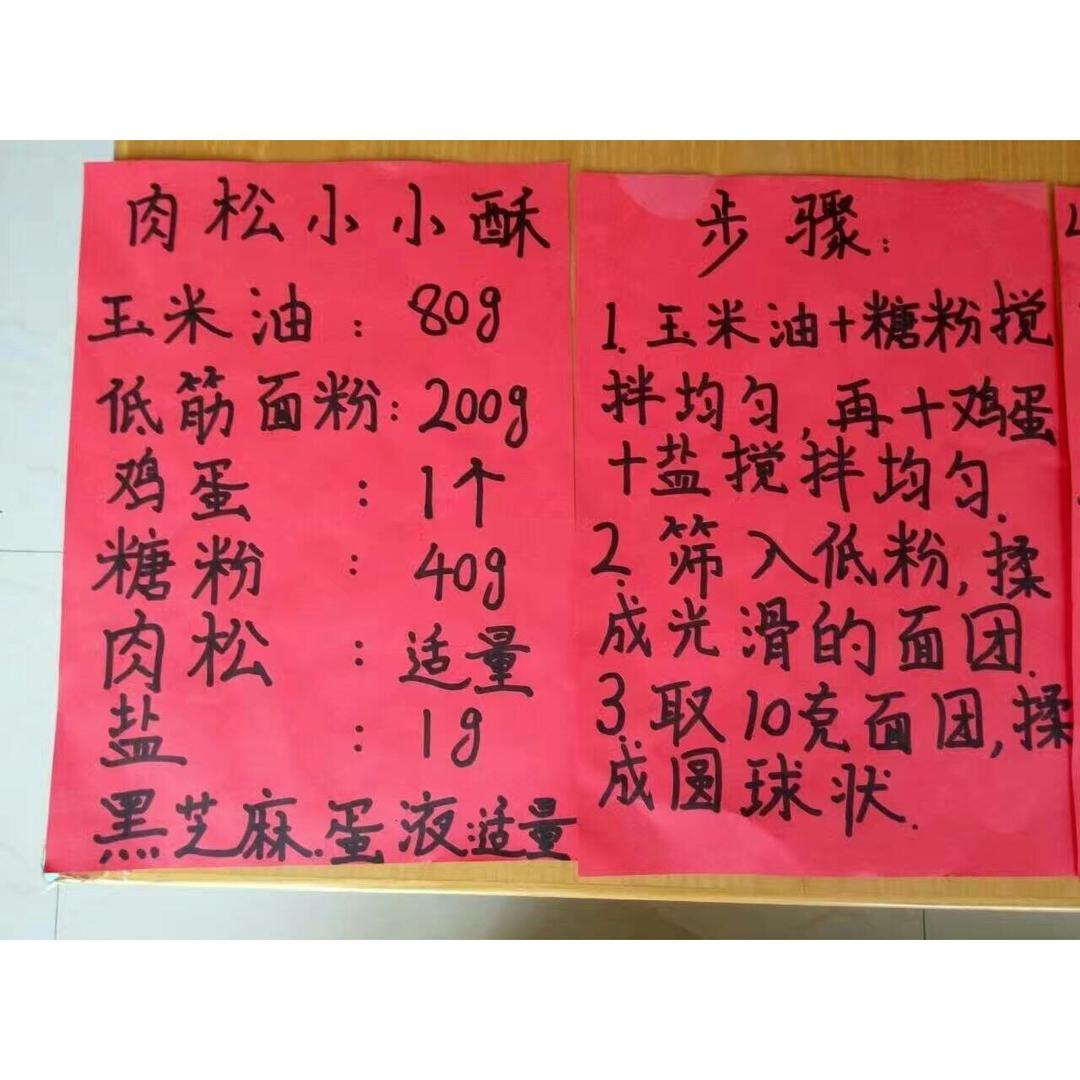 肉松小小酥
玉米油：80g
低筋面粉：200g
鸡蛋：1个
糖粉：40g
肉松：适量
盐：1g
黑芝麻.蛋液:适量
步骤：
1.玉米油+糖粉搅
拌均匀,再+鸡蛋
+盐搅拌均匀.
2.筛入低粉,揉
成光滑的面团.
3.取10克面团,揉
成圆球状.